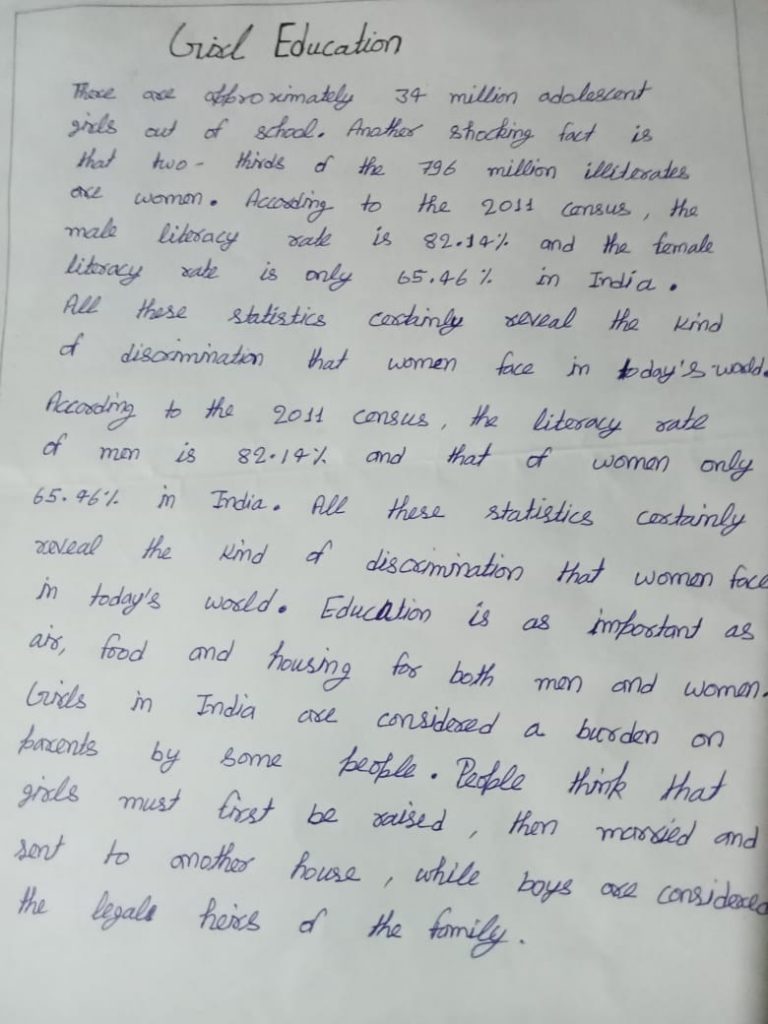 Girl Education
There are approximately 34 million adolescent
girls out of school. Another shocking fact is
that two-thirds of the 796 million illiterates
are women. According to the 2011 census, the
male literacy rate is 82.14% and the female
literacy rate is only 65.46% in India.
All these statistics certainly reveal the kind
of discrimination that women face in today's world.
According to the 2011 census, the literacy rate
of men is 82.14% and that of women only
65.46% in India. All these statistics certainly
reveal the kind of discrimination that women face
in today's world. Education is as important as
air, food and housing for both men and women.
Girls in India are considered a burden on
parents by some people. People think that
girls must first be raised, then married and
sent to another house, while boys are considered
the legal heirs of the family.